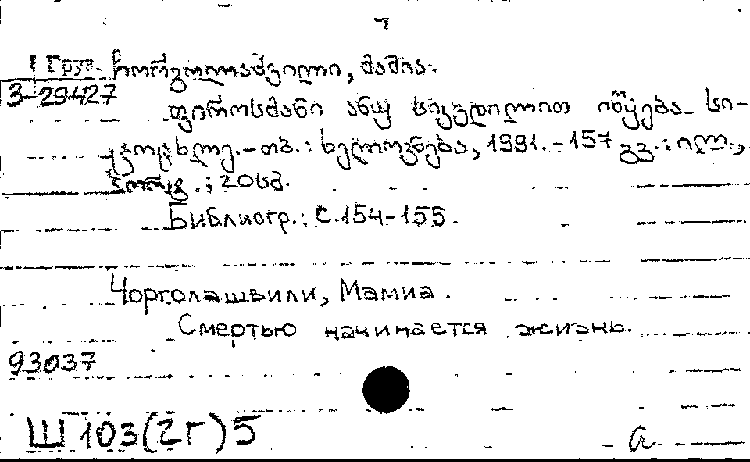 Груз. ჩორგოლაშვილი, მამია.
3-29427
ფიროსმანი ანუ სიკვდილით იწყება სი-
ცოცხლე. - თბ.: ხელოვნება, 1991. - 157 გვ.: ილ.,
პორტ.; 20 სმ.
Библиогр.: С.154-155.
Чорголашвили, Мамиа.
Смертью начинается жизнь.
93037
Ш 103(2Г)5
а